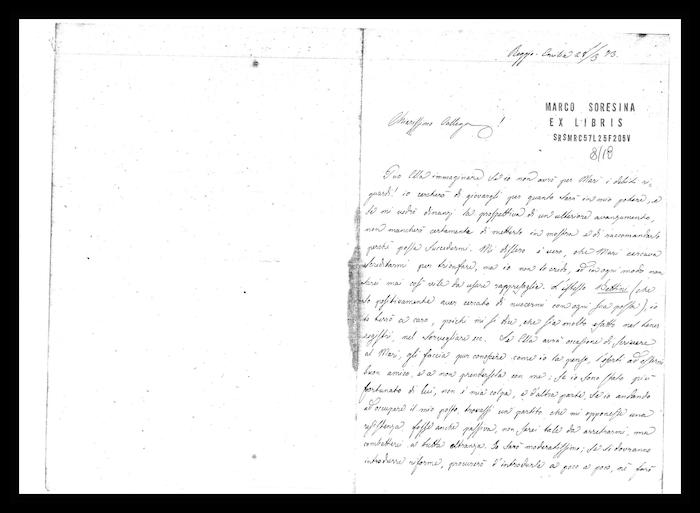 Reggio-Emilia 28/3 73.
MARCO SORESINA
EX LIBRIS
SRSMRC57L25F205V
8/18
Carissimo Collega!
Può Ella immaginare se io non avrò per Mari i debiti ri-
guardi! io cercherò di giovargli per quanto sarà in mio potere, e
se mi vedrò dinanzi la prospettiva di un ulteriore avanzamento,
non mancherò certamente di metterlo in mostra e di raccomandarlo
perché possa succedermi. Mi dissero è vero, che Mari cercava
screditarmi per trionfare, ma io non lo credo, ed in ogni modo non
sarei mai così vile da usare rappresaglie. L'istesso Bettini (che
so positivamente aver cercato di nuocermi con ogni sua possa), io
lo terrò a caro, poiché mi si dice, che sia molto esatto nel tener
registri, nel sorvegliare ec. Se Ella avrà occasione di scrivere
al Mari, gli faccia pur conoscere come io la penso, l'esorti ad essermi
buon amico, e a non prendersela con me; se io sono stato più
fortunato di lui, non è mia colpa, e d'altra parte, se io andando
ad occupare il mio posto, trovassi un partito che mi opponesse una
resistenza fosse anche passiva, non sarei tale da arretrarmi, ma
combatterei a tutta oltranza. Io sarò moderatissimo; se si dovranno
introdurre riforme, procurerò d'introdurle a poco a poco, né farò